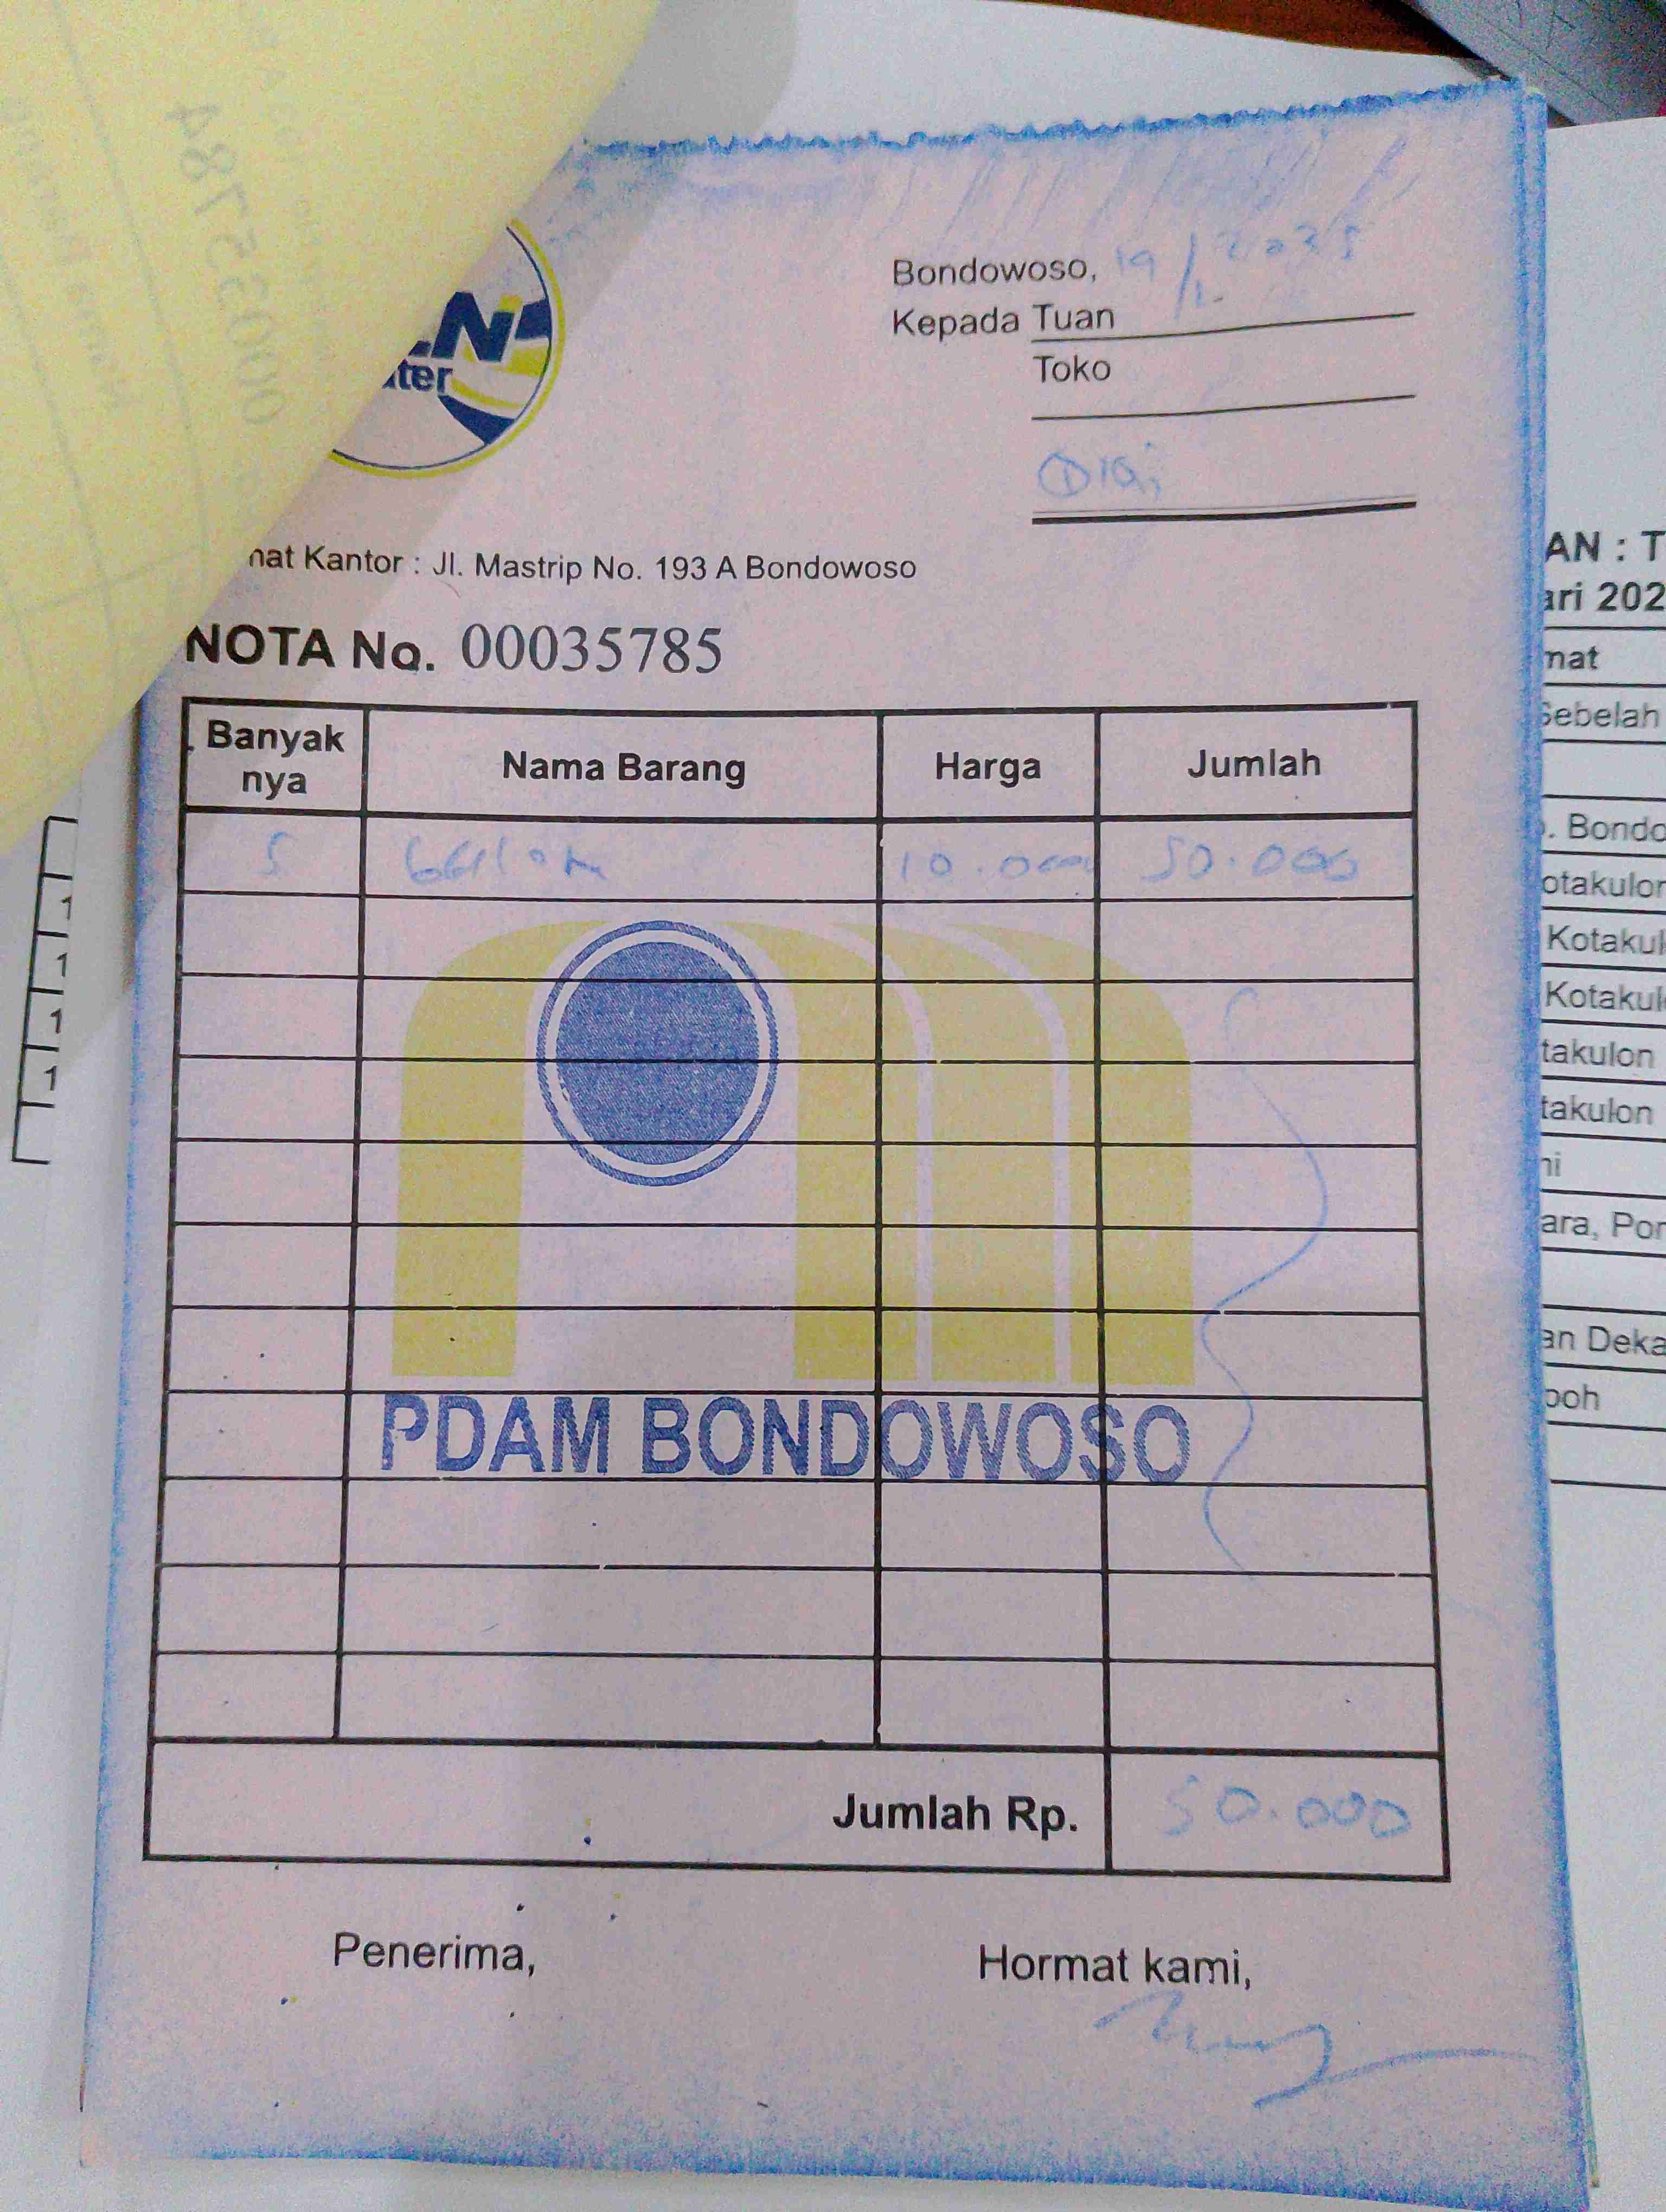 Bondowoso, 19/1. 2025
Kepada Tuan
Toko
nat Kantor : Jl. Mastrip No. 193 A Bondowoso
NOTA No. 00035785
Banyak nya Nama Barang Harga Jumlah
5 Galon 10.000 50.000
PDAM BONDOWOSO
Jumlah Rp. 50.000
Penerima, Hormat kami,
AN : T
ari 202
mat
Sebelah
. Bondo
otakulon
Kotakul
Kotakul
takulon
takulon
ni
ara, Por
an Deka
poh
1
1
1
1